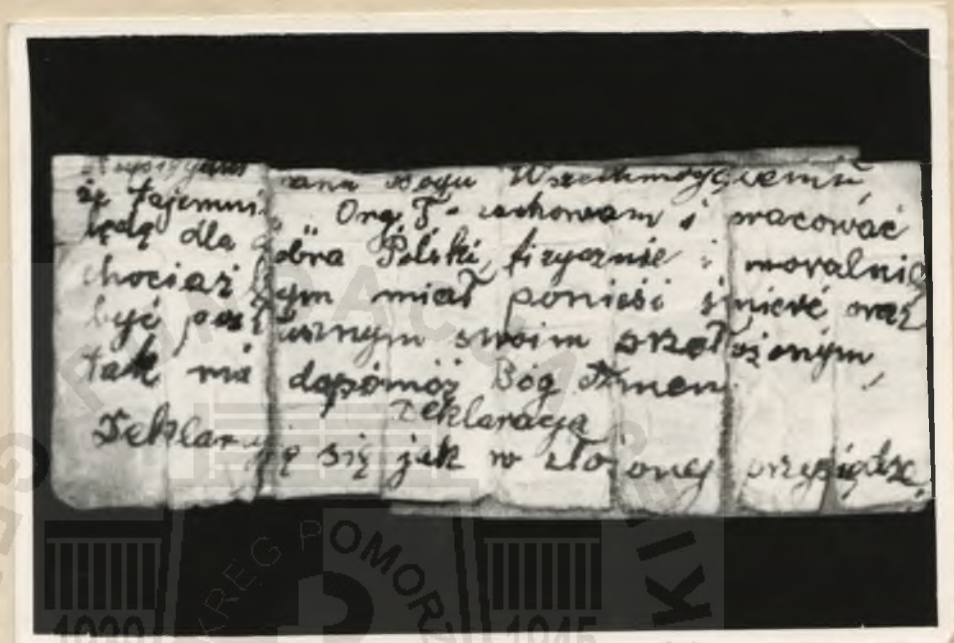 Przysięgam Panu Bogu Wszechmogącemu,
że tajemnic Org. T- zachowam i pracować
będę dla dobra Polski, fizycznie i moralnie
chociaż bym miał ponieść śmierć oraz
być posłusznym swoim przełożonym,
tak mi dopomóż Bóg Amen.
Deklaracja
Deklaruję się jak w złożonej przysiędze,
OKRĘG POMOR
1939 1945